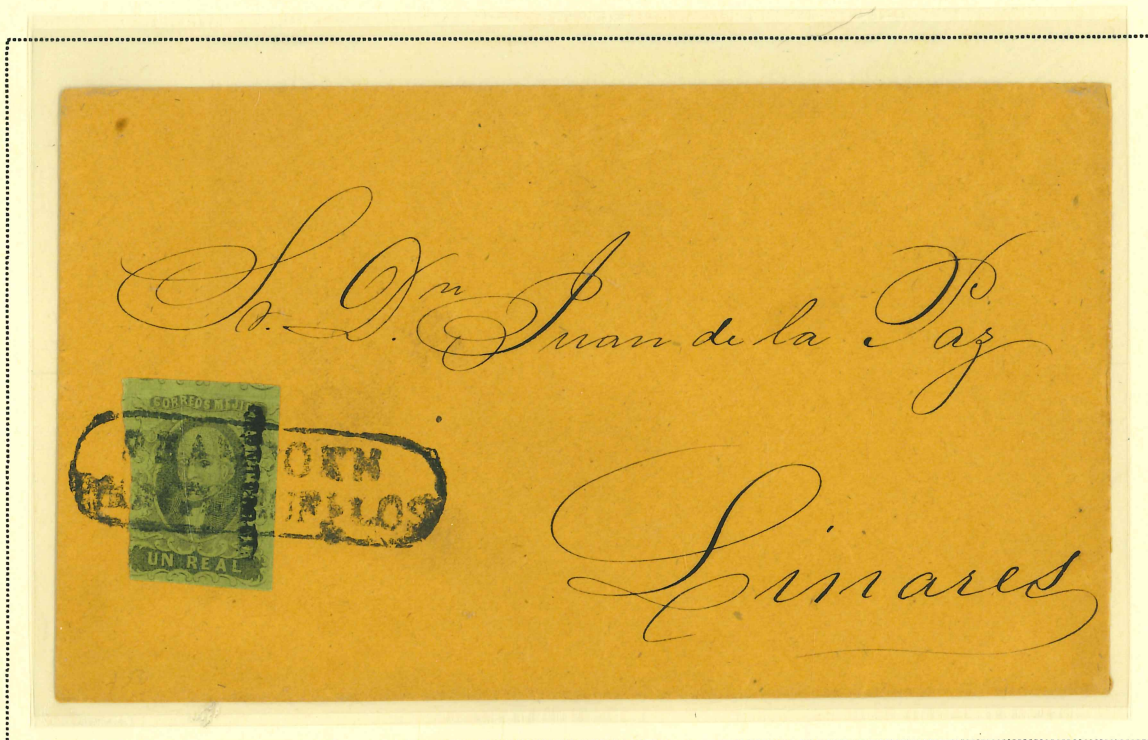 Sr. Dn. Juan de la Paz
Linares
CORREOS MEJI
UN REAL